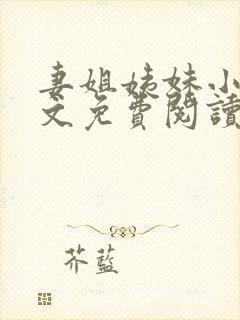 妻姐姊妹小
文免費閱讀
芥藍